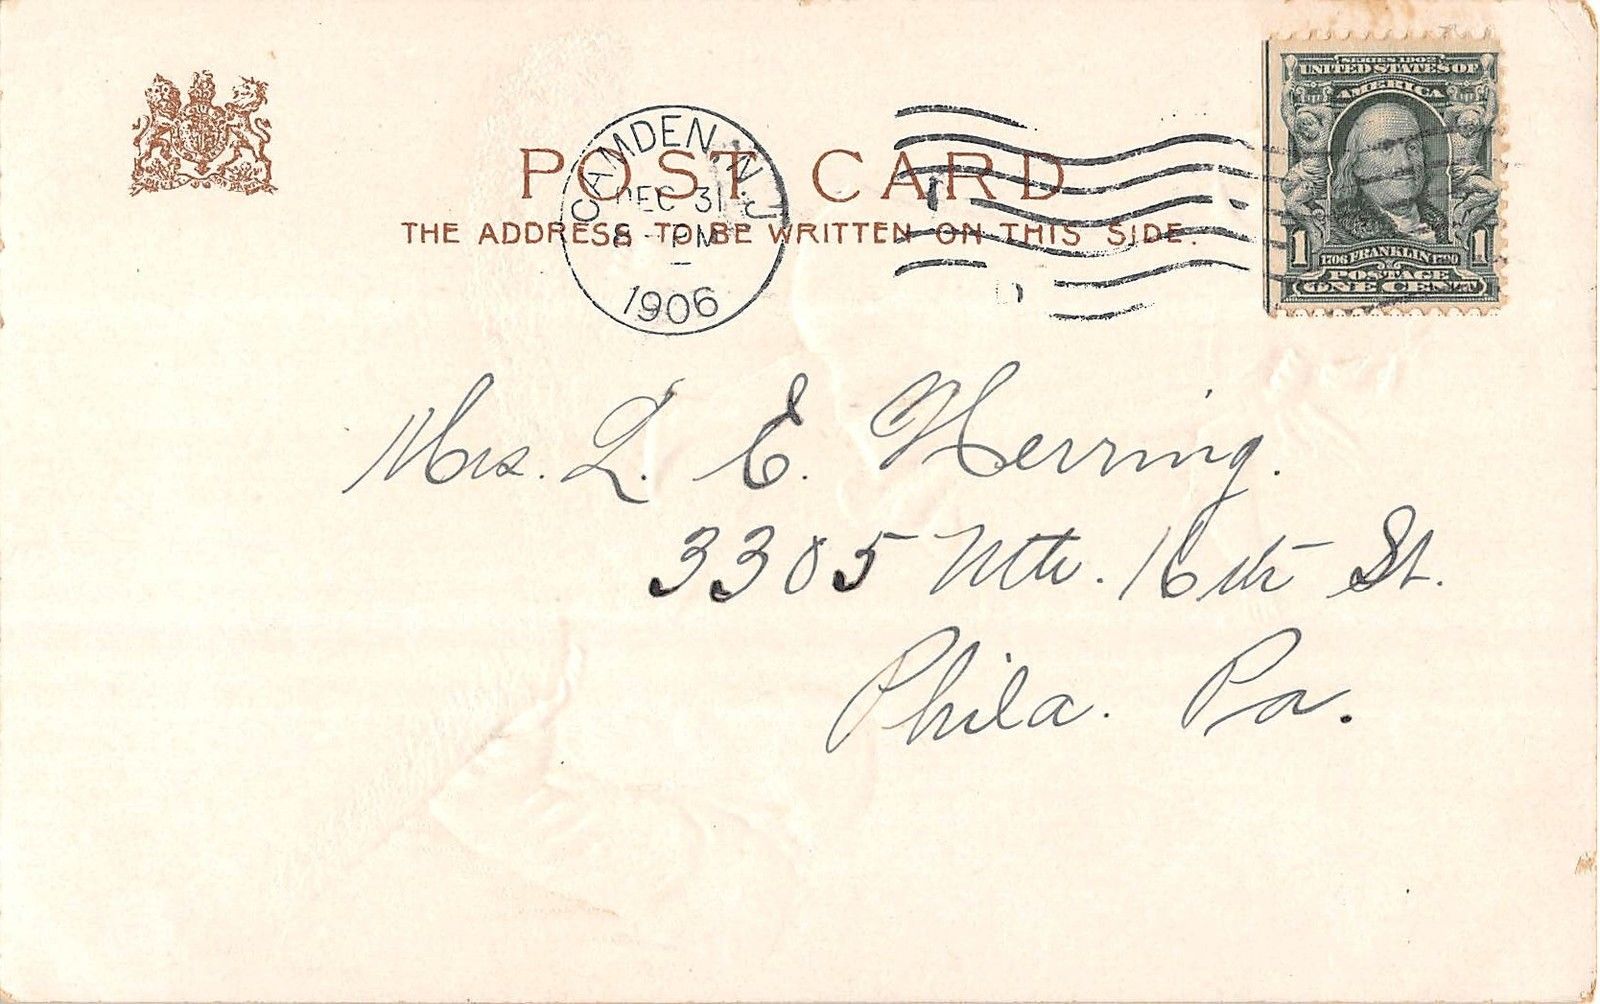 POST CARD
THE ADDRESS TO BE WRITTEN ON THIS SIDE.
CAMDEN, N.J.
DEC 31
8 - PM
1906
SERIES 1902
UNITED STATES OF
AMERICA
1 1
1706 FRANKLIN 1790
POSTAGE
ONE CENT
Mrs. L. E. Herring.
3305 Nth. 16th St.
Phila. Pa.